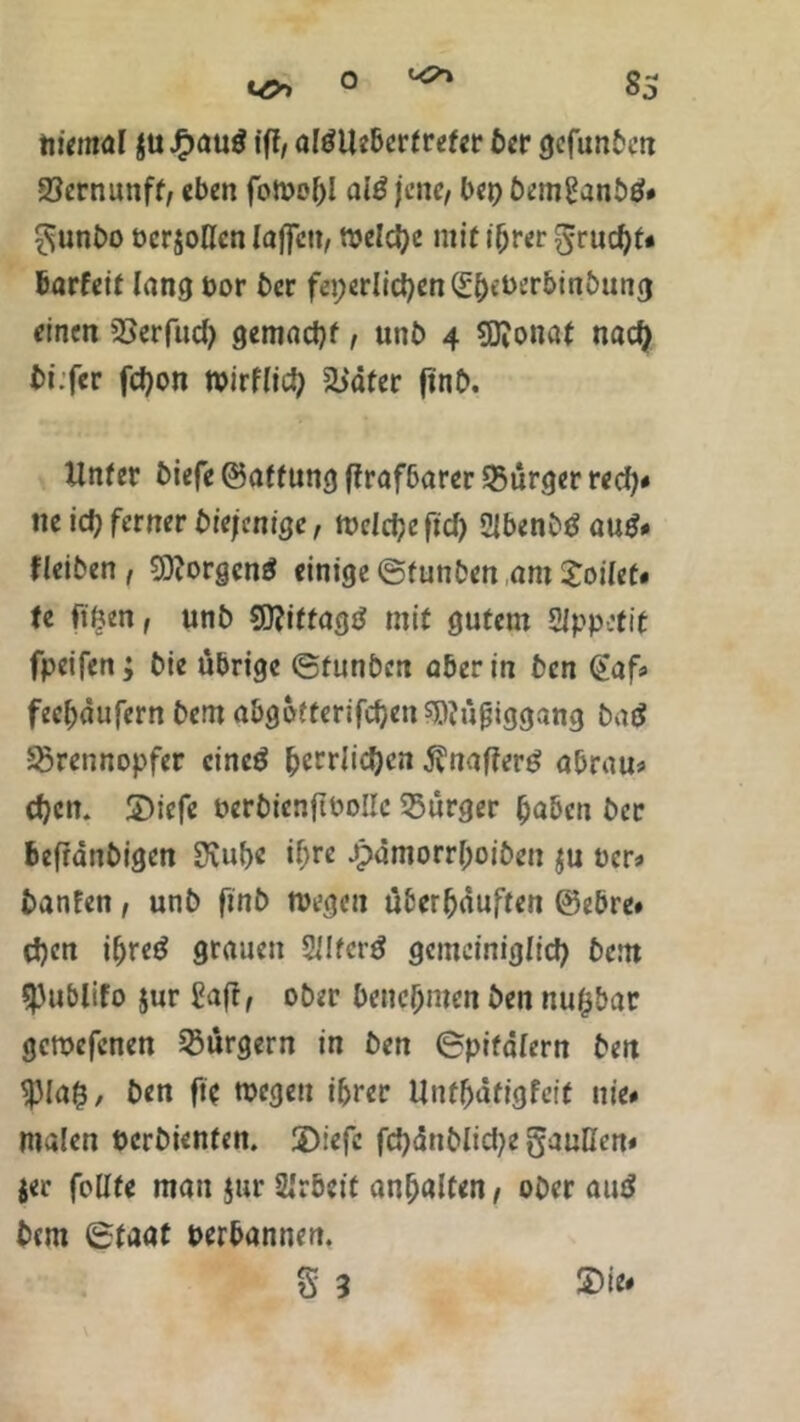 o 85
niemal zu Haus ist, als Uebertreter der gesunden
Vernunft, eben sowohl als jene, bey dem Lands-
Fundo verzollen lassen, welche mit ihrer Frucht-
barkeit lang vor der feyerlichen Eheverbindung
einen Versuch gemacht, und 4 Monat nach
dieser schon wirklich Väter sind.
Unter diese Gattung strafbarer Bürger rech-
ne ich ferner diejenige, welche sich Abends aus-
kleiden, Morgens einige Stunden am Toilet-
te sitzen, und Mittags mit gutem Appetit
speisen; die übrige Stunden aber in den Caf-
feehäusern dem abgötterischen Müßiggang das
Brennopfer eines herrlichen Knasters abrau-
chen. Diese verdienstvolle Bürger haben der
beständigen Ruhe ihre Hämorrhoiden zu ver-
danken, und sind wegen überhäuften Gebre-
chen ihres grauen Alters gemeiniglich dem
Publiko zur Last, oder benehmen den nutzbar
gewesenen Bürgern in den Spitälern den
Platz, den sie wegen ihrer Unthätigkeit nie-
malen verdienten. Diese schändliche Faullen-
zer sollte man zur Arbeit anhalten, oder aus
dem Staat verbannen.
F 3 Die-